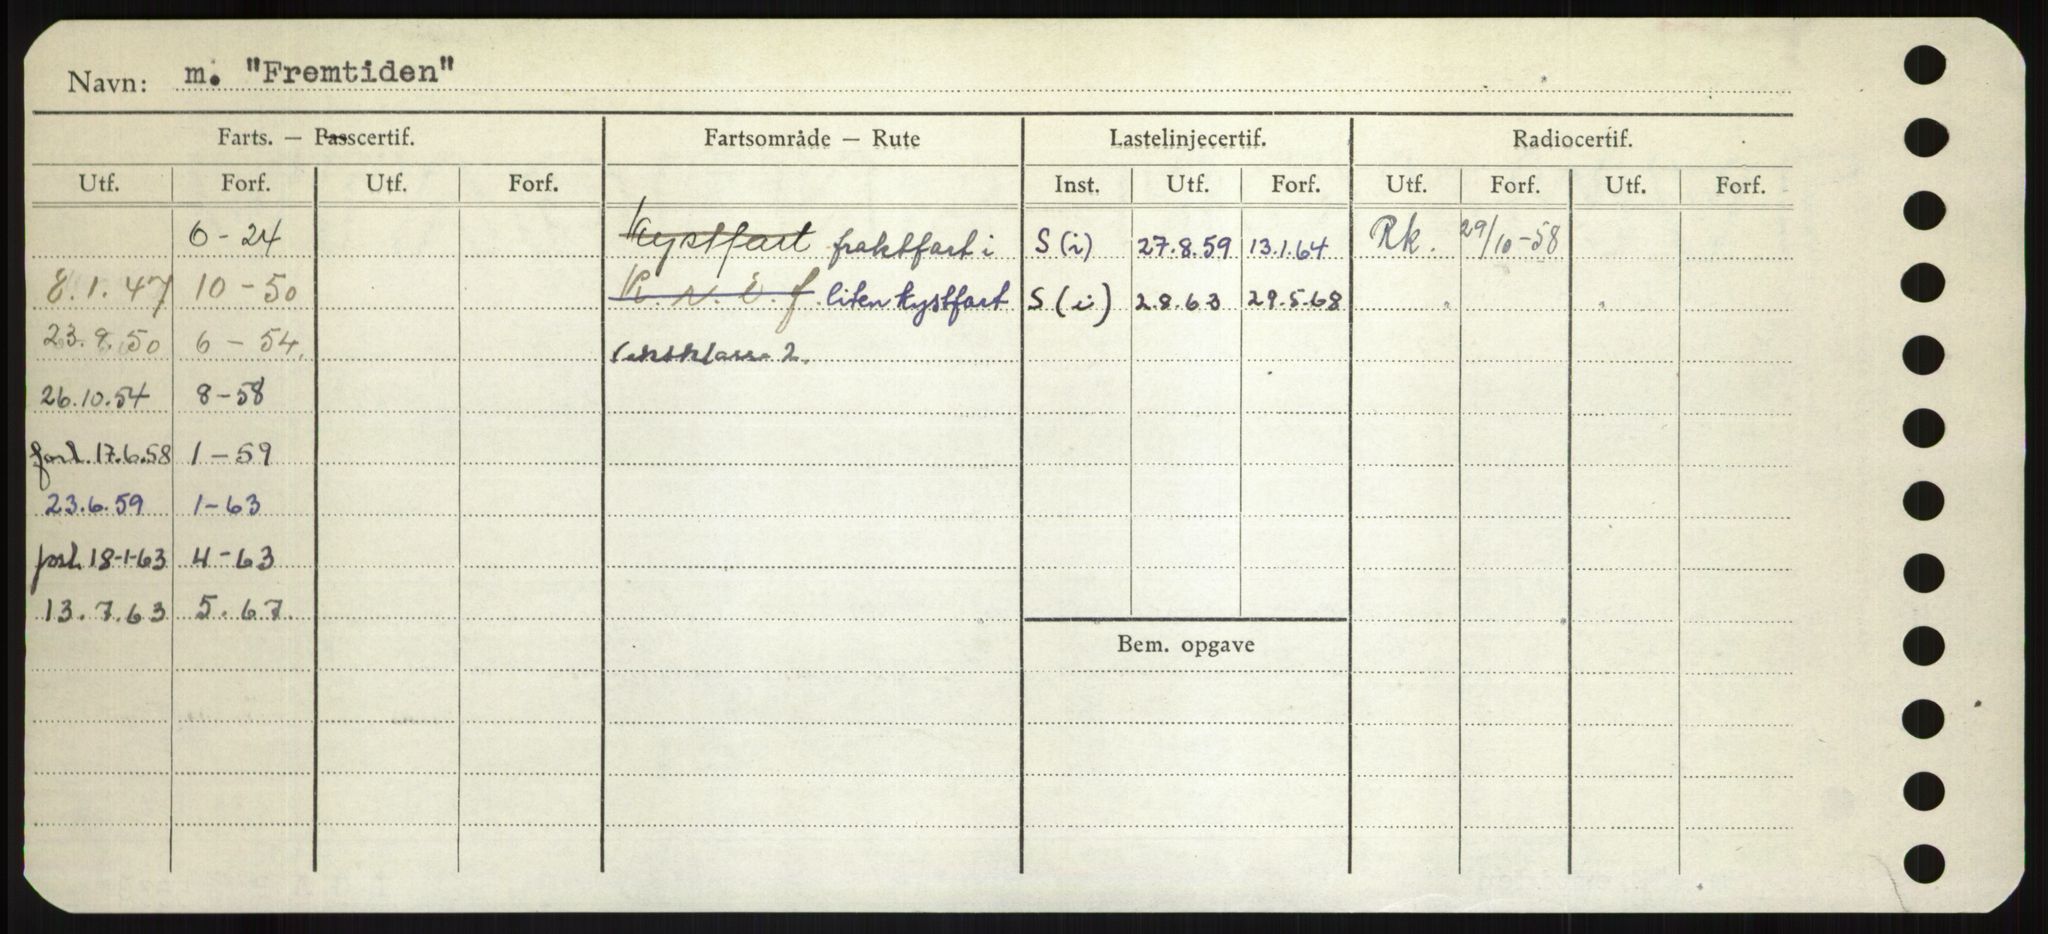 Navn: m. "Fremtiden"
Farts. — Passcertif. Fartsområde — Rute Lastelinjecertif. Radiocertif.
Utf. Forf. Utf. Forf. Inst. Utf. Forf. Utf. Forf. Utf. Forf.
6-24 Kystfart fraktfart i S (i) 27.8.59 13.1.64 Rk. 29/10-58
8.1.47 10-50 K. N. Ö. f. liten kystfart S (i) 2.8.63 29.5.68
23.9.50 6-54. 2.
26.10.54 8-58
forl. 17.6.58 1-59
23.6.59 1-63
forl. 18-1-63 4-63
13.7.63 5.67.
Bem. opgave